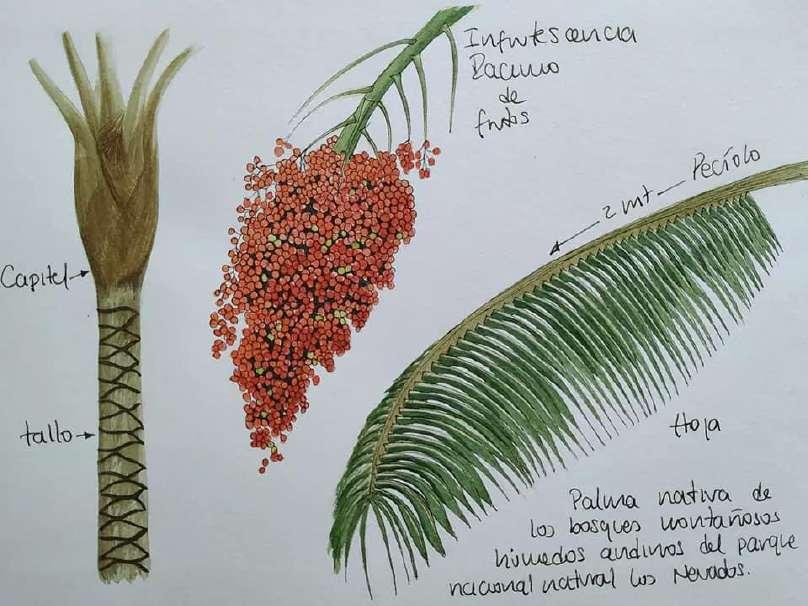 Infrutescencia
Racimo
de
frutos
2 mt
Pecíolo
Capitel
tallo
Hoja
Palma nativa de
los bosques montañosos
húmedos andinos del parque
nacional natural los Nevados.